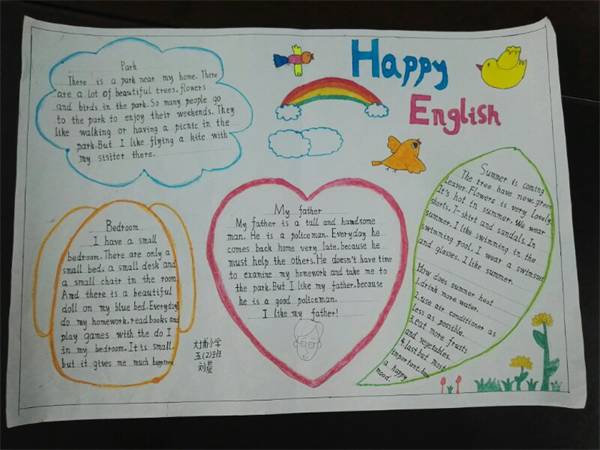 Happy
English
Park
There is a park near my home. There
are a lot of beautiful trees, flowers
and birds in the park. So many people go
to the park to enjoy their weekends. They
like walking or having a picnic in the
park. But I like flying a kite with
my sisiter there.
Bedroom
I have a small
bedroom. There are only a
small bed, a small desk and
a small chair in the room
And there is a beautiful
doll on my blue bed. Everyday I
do my homework, read books and
play games with the do I
in my bedroom. It is small,
but it gives me much happiness
My father
My father is a tall and handsome
man. He is a policeman. Everyday he
comes back home very late, because he
must help the others. He doesn't have time
to examine my homework and take me to
the park. But I like my father, because
he is a good policeman.
I like my father!
Summer is coming
The tree have new green
leaver. Flowers is very lovely.
It's hot in summer. We wear
shorts, T-shirt and sandals. In
summer, I like swimming in the
swimming pool. I wear a swimsuit
and glasses. I like summer.
How does summer heat
1.drink more water.
2.use air conditioner as
less as possible.
3.eat more fruits
and vegetables.
4.last but most
important, keep
a happy
mood.
小学
五(2)班
刘